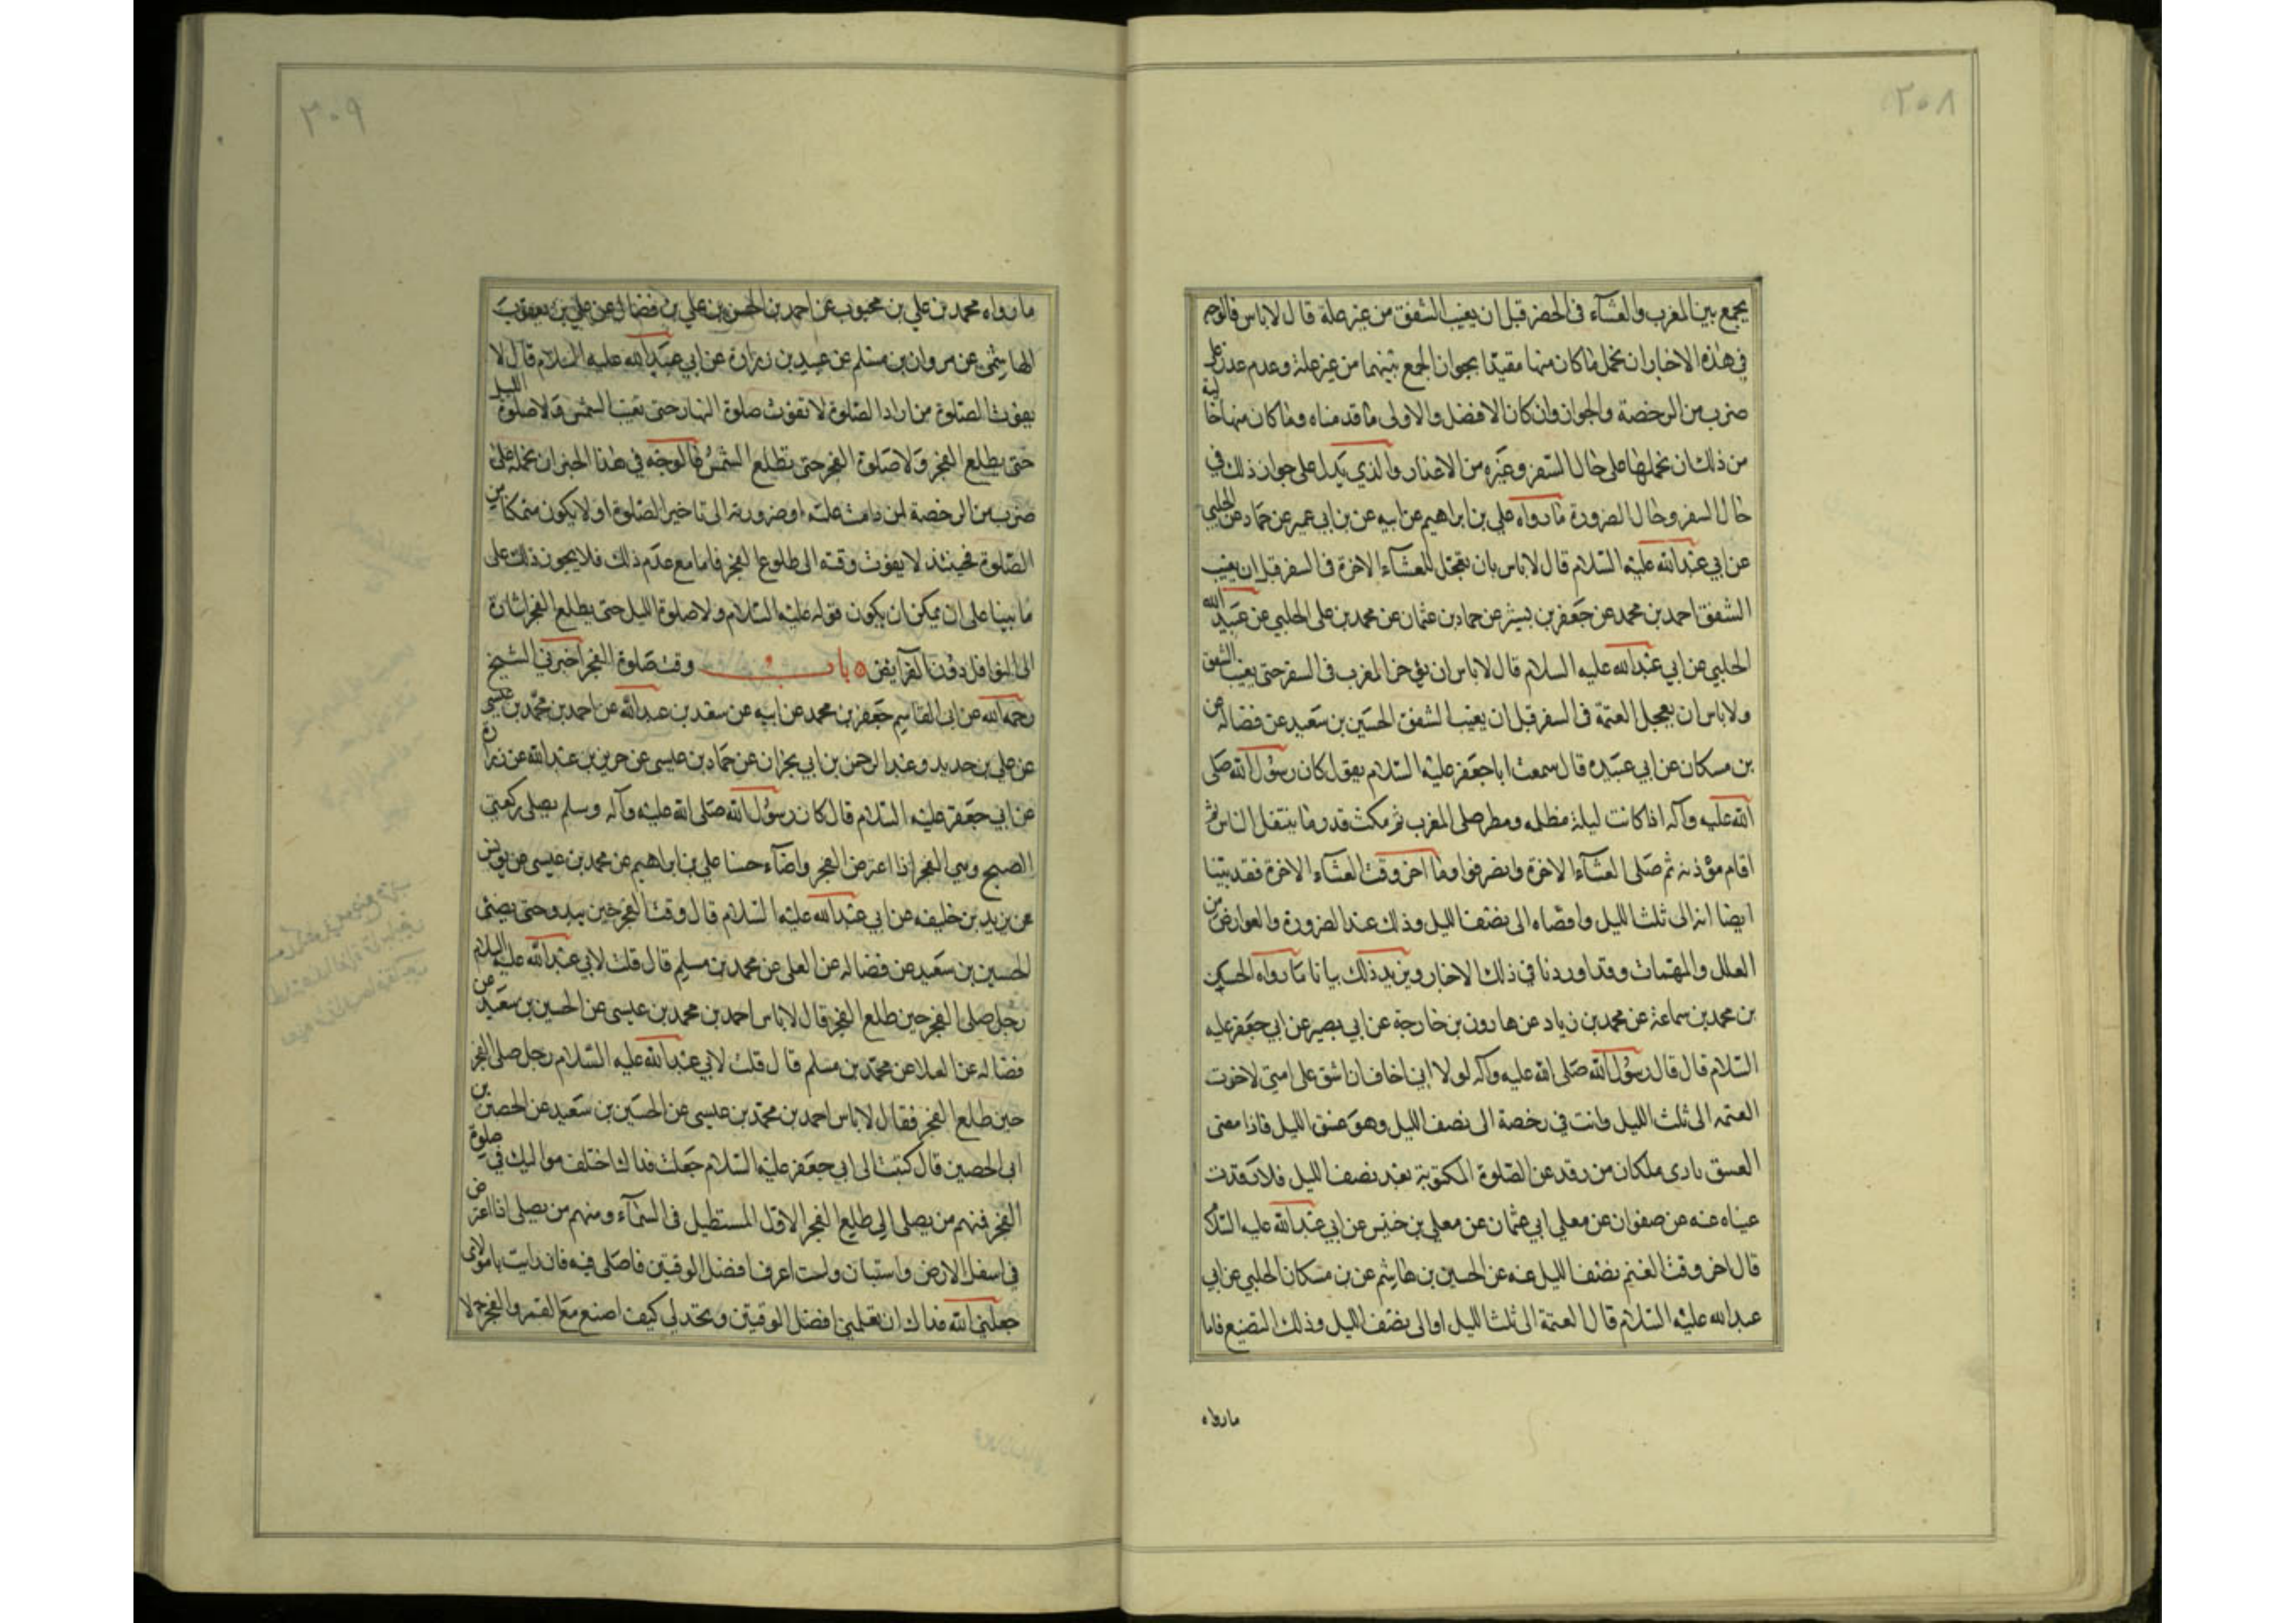 ٢٠٨
يجمع بين المغرب والعشآء فى الحضر قبل ان يغيب الشفق من غير علة قال لا باس فالوجه
فى هذه الاخبار ان نحمل ما كان منها مقيدا بجواز الجمع بينهما من غير علة وعدم عذر على
ضرب من الرخصة والجواز وان كان الافضل والاولى ما قدمناه وما كان منها خالية
من ذلك ان نحملها على حال السفر وغيره من الاعذار والذي يدل على جواز ذلك في
حال السفر وحال الضرورة ما رواه علي بن ابراهيم عن ابيه عن بن ابي عمير عن حماد عن الحلبي
عن ابي عبد الله عليه السلام قال لا باس بان تعجل العشآء الاخرة فى السفر قبل ان يغيب
الشفق احمد بن محمد عن جعفر بن بشير عن حماد بن عثمان عن محمد بن على الحلبي عن عبيد الله
الحلبي عن ابي عبد الله عليه السلام قال لا باس ان يؤخر المغرب فى السفر حتى يغيب الشفق
ولا باس ان يعجل العتمة فى السفر قبل ان يغيب الشفق الحسين بن سعيد عن فضاله عن
بن مسكان عن ابي عبيده قال سمعت ابا جعفر عليه السلام يقول كان رسول الله صلى
الله عليه وآله اذا كانت ليلة مظلمه ومطر صلى المغرب ثم مكث قدر ما يتنفل الناس ثم
اقام مؤذنه ثم صلى العشآء الاخرة وانصرفوا وما اخر وقت العشآء الاخرة فقد بينا
ايضا انه الى ثلث الليل واقصاه الى نصف الليل وذلك عند الضرورة والعوارض من
العلل والمهمات وقد اوردنا في ذلك الاخبار ويزيد ذلك بيانا ما رواه الحسين
بن محمد بن سماعة عن محمد بن زياد عن هارون بن خارجة عن ابي بصير عن ابي جعفر عليه
السلام قال قال رسول الله صلى الله عليه وآله لولا اني اخاف ان اشق على امتي لاخرت
العتمه الى ثلث الليل وانت في رخصة الى نصف الليل وهو غسق الليل فاذا مضى
الغسق نادى ملكان من رقد عن الصلوة المكتوبة بعد نصف الليل فلا رقدت
عيناه عنه عن صفوان عن معلى ابي عثمان عن معلي بن خنيس عن ابي عبد الله عليه السلام
قال اخر وقت العتم نصف الليل عنه عن الحسين بن هاشم عن بن مسكان الحلبي عن ابي
عبد الله عليه السلام قال العتمة الى ثلث الليل او الى نصف الليل وذلك التضيع فاما
ما رواه
٣٠٩
ما رواه محمد بن علي بن محبوب عن احمد بن الحسن بن علي بن فضال عن علي بن يعقوب
الهاشمي عن مروان بن مسلم عن عبيد بن زرارة عن ابي عبد الله عليه السلام قال لا
يفوت الصلوة من اراد الصلوة لا تفوت صلوة النهار حتى تغيب الشمس ولا صلوة الليل
حتى يطلع الفجر ولا صلوة الفجر حتى تطلع الشمس فالوجه في هذا الخبر ان نحمله على
ضرب من الرخصة لمن دامت علته او ضرورته الى تاخير الصلوة او لا يكون متمكنا من
الصلوة فحينئذ لا يفوت وقته الى طلوع الفجر فاما مع عدم ذلك فلا يجوز ذلك على
ما بينا على ان يمكن ان يكون قوله عليه السلام ولا صلوة الليل حتى يطلع الفجر اشارة
الى النوافل دون الفرايض باب وقت صلوة الفجر اخبرني الشيخ
رحمه الله عن ابى القاسم جعفر بن محمد عن ابيه عن سعد بن عبد الله عن احمد بن محمد بن عيسى
عن علي بن حديد وعبد الرحمن بن ابي نجران عن حماد بن عيسى عن حريز بن عبد الله عن زرارة
عن ابي جعفر عليه السلام قال كان رسول الله صلى الله عليه وآله وسلم يصلى ركعتي
الصبح وهي الفجر اذا اعترض الفجر واضآء حسنا علي بن ابراهيم عن محمد بن عيسى عن يونس
عن يزيد بن خليفه عن ابي عبد الله عليه السلام قال وقت الفجر حين يبدو حتى يضئ
الحسين بن سعيد عن فضاله عن العلى عن محمد بن مسلم قال قلت لابي عبد الله عليه السلام
رجل صلى الفجر حين طلع الفجر قال لا باس احمد بن محمد بن عيسى عن الحسين بن سعيد عن
فضاله عن العلا عن محمد بن مسلم قال قلت لابي عبد الله عليه السلام رجل صلى الفجر
حين طلع الفجر فقال لا باس احمد بن محمد بن عيسى عن الحسين بن سعيد عن الحصين بن
ابى الحصين قال كتبت الى ابي جعفر عليه السلام جعلت فداك اختلف مواليك في صلوة
الفجر فمنهم من يصلى اذا طلع الفجر الاول المستطيل فى السمآء ومنهم من يصلى اذا اعترض
في اسفل الارض واستبان ولست اعرف افضل الوقتين فاصلى فيه فان رايت يا مولاى
جعلني الله فداك ان تعلمني افضل الوقتين وتحد لي كيف اصنع مع القمر والفجر لا